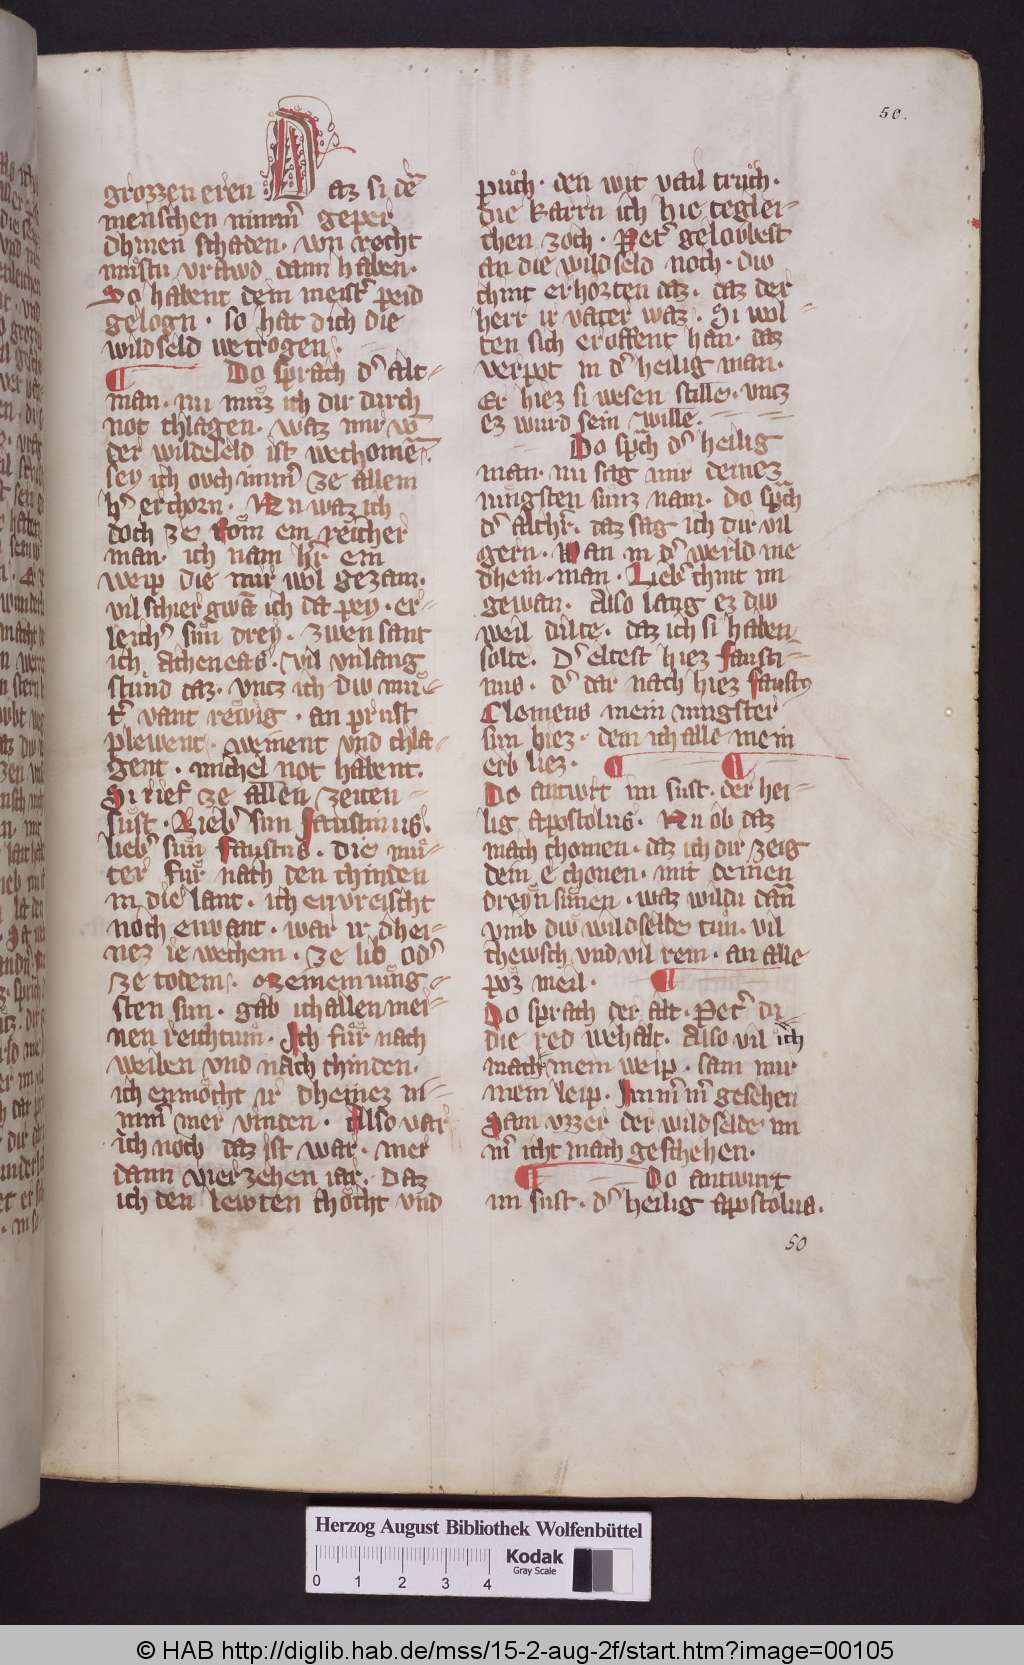 50.
grozzen eren Daz si dē
menschen nimm̄ geper
dhinen schaden · von recht
mustu vrawd dann haben ·
So habent dem meist͛ peid
gelogn · so hat dich die
wildseld wetrogen ·
¶ Do sprach d͛ alt-
man · nu muͦz ich dir durch
not chlagen · waz mir vō
der wildeseld ist wechomē ·
sey ich ovch imm͛ ze allem
h͛ erchorn · Nu waz ich
doch ze Rom ein reicher
man · ich nam hīr ein
weip die mir wol gezam ·
vil schier gwā ich da pey · er-
leich͛ suͤn drey · zwen sant
ich Atheneas · Vil vnlang
stuͤnd daz · vntz ich diw muͦ-
t͛ vant rewig · an prust
plewent · weinent vnd chla-
gent · michel not habent ·
Si rief ze allen zeiten
suͤst · Lieb͛ sun Faustinus ·
lieb͛ suͤn Faustus · die muͦ-
ter fuͦr nach den chinden
in die lant · ich envreischt
noch envant · war ir dhei-
nez ie wechem · ze lib od͛
ze todem · Meinem iung-
sten sun · gab ich allen mei-
nen reichtum · Ich fuͦr nach
weiben vnd nach chinden ·
ich enmocht ir dheinez ni-
mm͛ mer vinden · Also var
ich noch daz ist war · mer
dann vierzehen iar · Daz
ich den lewten choͤcht vnd
puͦch · den wit vail truͦch ·
die Karrn ich hie teglei-
chen zoch · Pet͛ geloubest
an die wildseld noch · diw
chint erhorten daz · daz der
herr ir vater waz · Si wol-
ten sich eroffent han · daz
verpot in d͛ heilig man ·
Er hiez si wesen stille · vntz
ez wurd sein wille ·
Do sp̄ch d͛ heilig
man · nu sag mir deinez
iungsten suͤnz nam · do sp̄ch
d͛ altherr · daz sag ich dir vil
gern · Wan in d͛ werld nie
dhein man · Lieb͛ chint im
gewan · Also lang ez diw
weil dulte · daz ich si haben
solte · D͛ eltest hiez Fausti-
nus · d͛ dar nach hiez Faustꝰ
Clemens mein iungster
sun hiez · dem ich alle mein
erb liez · ¶ ¶
Do antwrt im sust · der hei-
lig apostolus · Nu ob daz
mach chomen · daz ich dir zeig
dein e chonen · mit deinen
dreyn suͤnen · waz wildu dan̄
vmb diw wildselde tuͦn · vil
chewsch vnd vil rein · an alle
poͤz meil · ¶
Do sprach der alt · Pet͛ du
die red wehalt · Also vil ich
mach mein weip · sam mir
mein leip · Nimm͛ m͛ gesehen
Sam vzzer der wildselde im
m͛ icht mach geschehen ·
¶ Do antwurt
im sust · d͛ heilig apostolus ·
50
Herzog August Bibliothek Wolfenbüttel
0 1 2 3 4
Kodak
Gray Scale
© HAB http://diglib.hab.de/mss/15-2-aug-2f/start.htm?image=00105